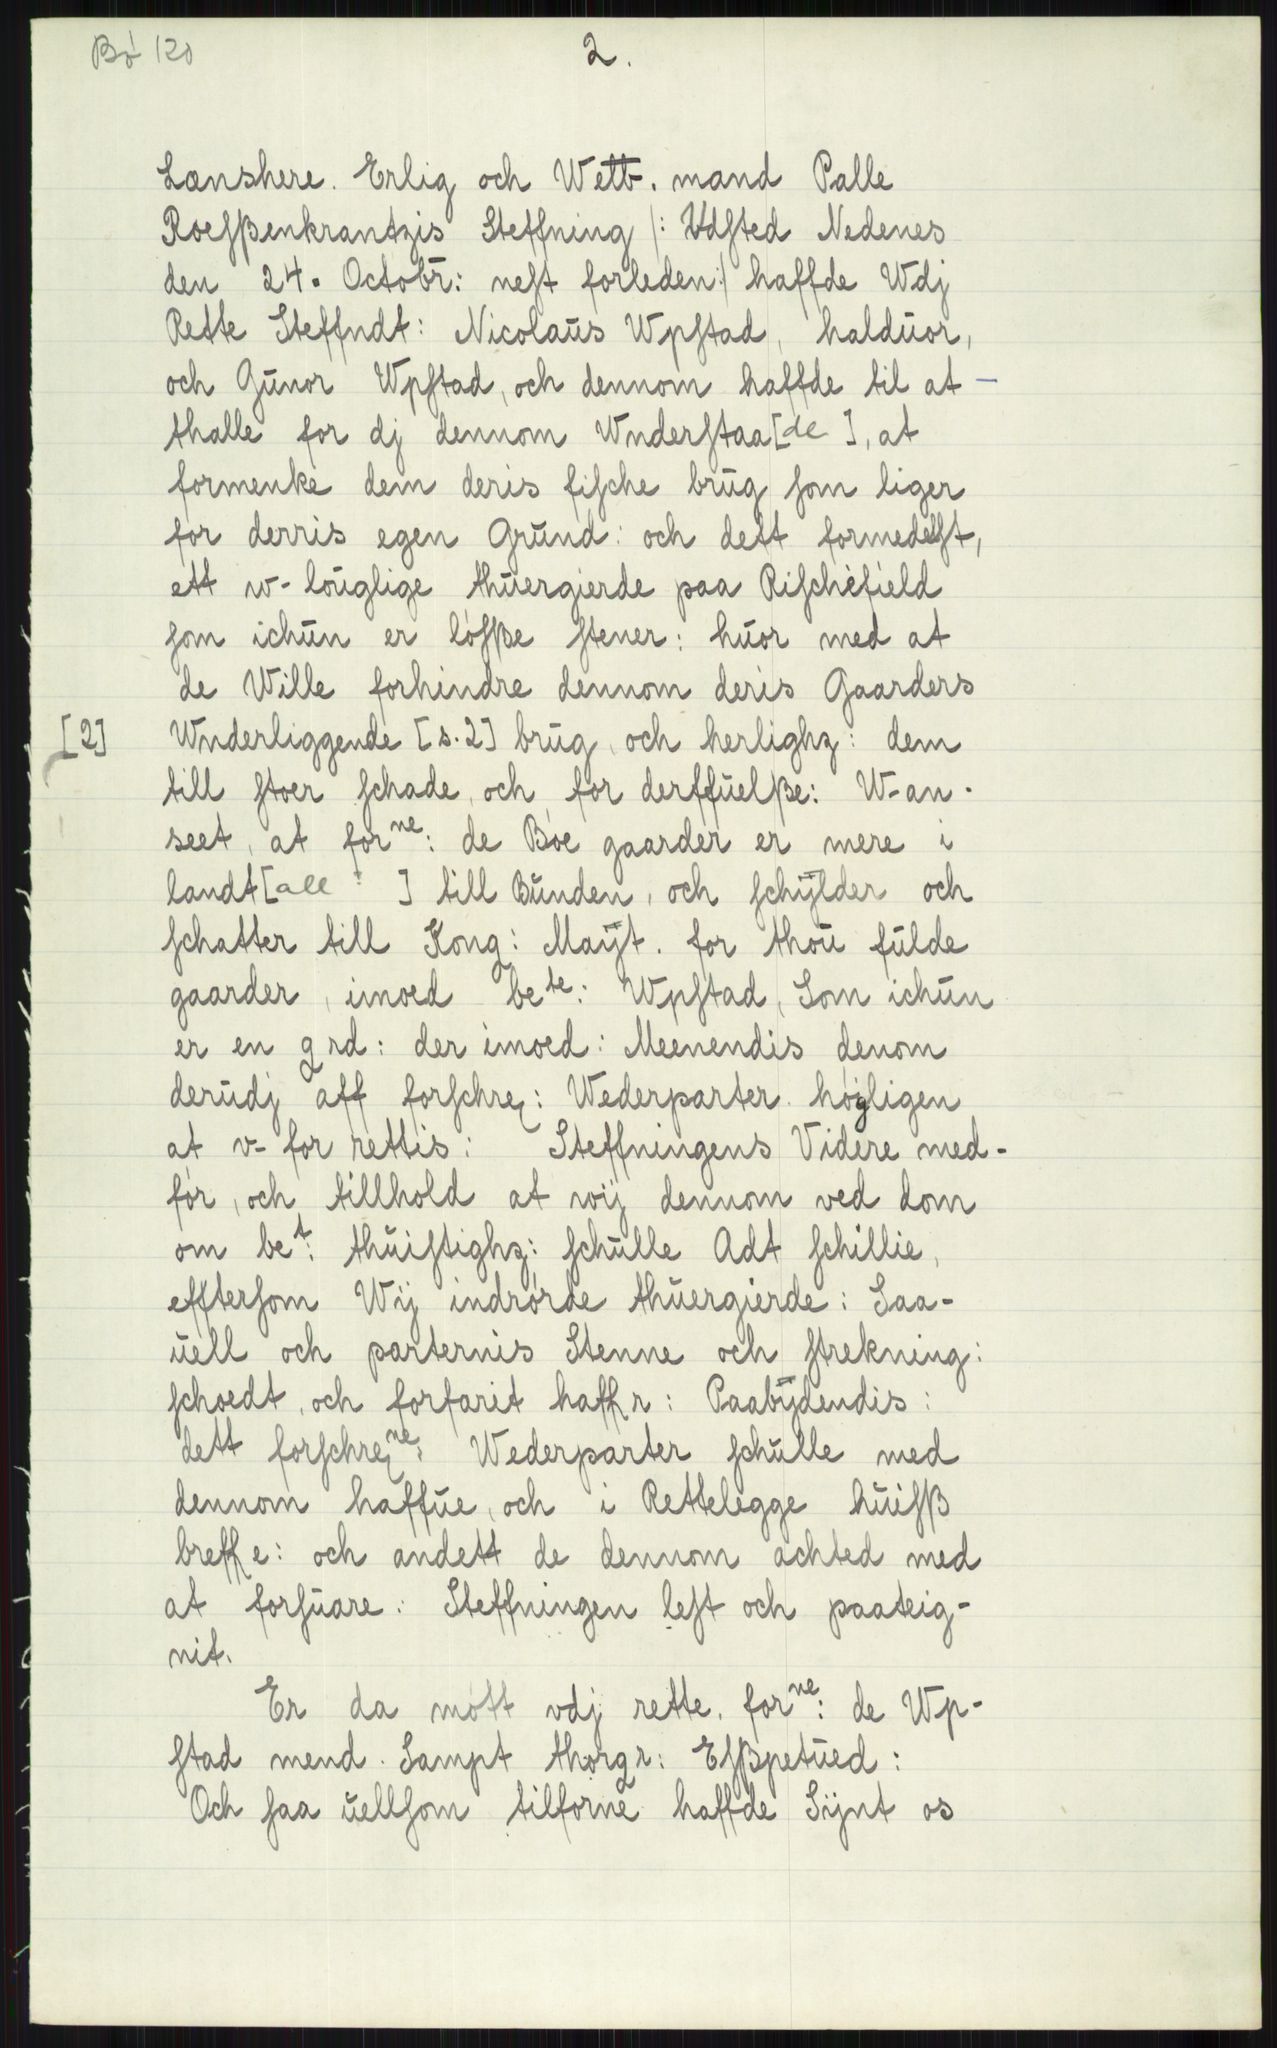 Bø 120
2.
Lænshere. Erlig och Wetb. mand Palle
Roesſßenkrantzis Steffning /: Vdſted Nedenes
den 24. Octobr̄: neſt forleden :/ haffde Wdj
Rette Steffndt: Nicolaŭs Wpſtad, haldŭor,
och Gŭnor Wpſtad, och dennom haffde til at –
thalle for dj dennom Wnderſtaa[de ], at
formenke dem deris fiſche brŭg ſom liger
for derris egen Grŭnd: och dett formedelſt,
ett w-loŭglige thŭergierde paa Riſchefield
ſom ichŭn er løſße ſtener: hŭor med at
de Wille forhindre dennom deris Gaarders
[2] Wnderliggende [s.2] brŭg, och herlighz: dem
till ſtoer ſchade, och for derffŭelße: W-an-
seet, at forne: de Bøe gaarder er mere i
landt[all ] till Bŭnden, och ſchÿlder och
ſchatter till Kong: Maÿt. for thoŭ fŭlde
gaarder, imoed bete: Wpſtad, Som ichŭn
er en grd: der imoed: Meenendis denom
derŭdj aff forſchreͅ: Wederparter. højgligen
at v- for rettis: Steffningens Videre med-
før, och tillhold at wij dennom ved dom
om bet: thŭiſtighz: ſchŭlle Adt ſchillie,
effterſom Wij indrørde thŭergierde: Saa-
ŭell och parternis Stenne och ſtrekning:
ſchoedt, och forfarit haffr: Paabÿdendis:
dett forſchrene: Wederparter ſchŭlle med
dennom haffŭe, och i Rettelegge hŭiſß
breffe: och andett de dennom achted med
at forſŭare: Steffningen leſt och paateig-
nit.
Er da mött vdj rette, forne: de Wp-
ſtad mend. Sampt thorgr: Eſßpetŭed:
Och ſaa ŭellſom tilforne haffde Sijnt os